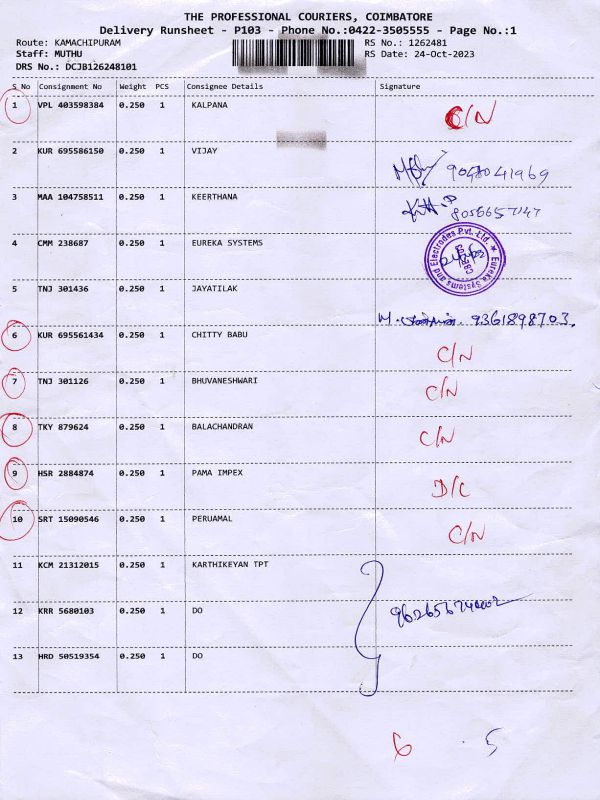 THE PROFESSIONAL COURIERS, COIMBATORE
Delivery Runsheet - P103 - Phone No.:0422-3505555 - Page No.:1
Route: KAMACHIPURAM RS No.: 1262481
Staff: MUTHU RS Date: 24-Oct-2023
DRS No.: DCJB126248101
S No Consignment No Weight PCS Consignee Details Signature
1 VPL 403598384 0.250 1 KALPANA C/N
2 KUR 695586150 0.250 1 VIJAY 9048041969
3 MAA 104758511 0.250 1 KEERTHANA 8056657147
4 CMM 238687 0.250 1 EUREKA SYSTEMS Eureka Systems and Electrodes Pvt. Ltd. ★
5 TNJ 301436 0.250 1 JAYATILAK M. 9361898703.
6 KUR 695561434 0.250 1 CHITTY BABU C/N
7 TNJ 301126 0.250 1 BHUVANESHWARI C/N
8 TKY 879624 0.250 1 BALACHANDRAN C/N
9 HSR 2884874 0.250 1 PAMA IMPEX D/C
10 SRT 15090546 0.250 1 PERUAMAL C/N
11 KCM 21312015 0.250 1 KARTHIKEYAN TPT
12 KRR 5680103 0.250 1 DO
13 HRD 50519354 0.250 1 DO
6 5